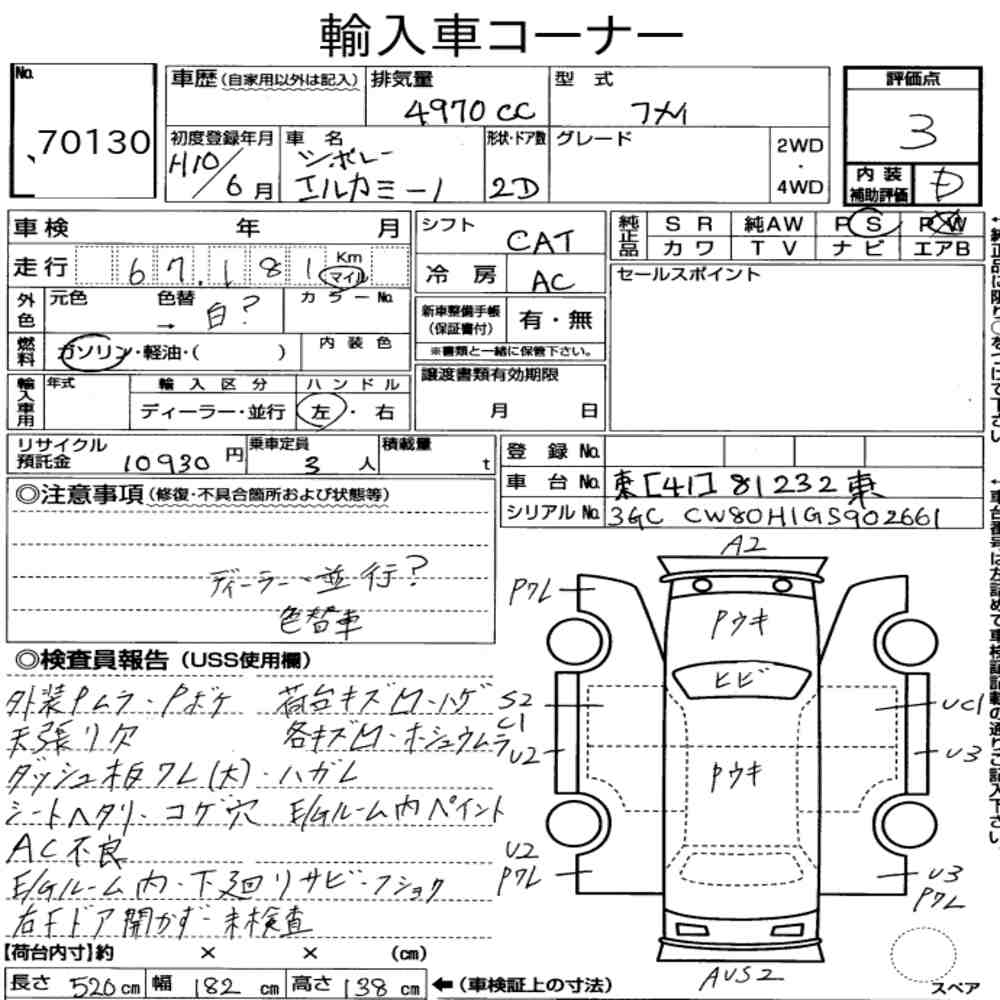 輸入車コーナー
No. 70130
車歴 (自家用以外は記入)
排気量 4970 cc
型式 フメイ
評価点 3
初度登録年月 H10/6月
車名 シボレー エルカミーノ
形状・ドア数 2D
グレード
2WD・4WD
内装補助評価 D
車検 年 月
走行 67,181 Km マイル
シフト CAT
冷房 AC
純正品 SR 純AW PS PW
カワ TV ナビ エアB
セールスポイント
外色 元色 色替 → 白? カラーNo.
新車整備手帳(保証書付) 有・無
※書類と一緒に保管下さい。
燃料 ガソリン・軽油・( ) 内装色
輸入車用 年式 輸入区分 ハンドル
ディーラー・並行 左・右
譲渡書類有効期限
月 日
リサイクル預託金 10930円
乗車定員 3人
積載量 t
登録No.
車台No. 東[41]81232東
シリアルNo. 3GC CW80H1GS902661
◎注意事項(修復・不具合箇所および状態等)
ディーラー・並行?
色替車
◎検査員報告(USS使用欄)
外装Pムラ・Pボケ 荷台キズ凹・ハゲ
天張リ欠 各キズ凹・ホシュウムラ
ダッシュ板ワレ(大)・ハガレ
シートヘタリ・コゲ穴 E/Gルーム内ペイント
AC不良
E/Gルーム内・下廻リサビ・フショク
右Fドア開かず 未検査
【荷台内寸】約 × × (cm)
長さ 520cm 幅 182cm 高さ 138cm ←(車検証上の寸法)
A2
Pワレ
Pウキ
ヒビ
S2
C1
U2
UC1
U3
Pウキ
U2
Pワレ
U3
Pワレ
AUS2
スペア
←純正品に限り○をつけて下さい
←車台番号は左詰めで車検証記載の通りご記入下さい。